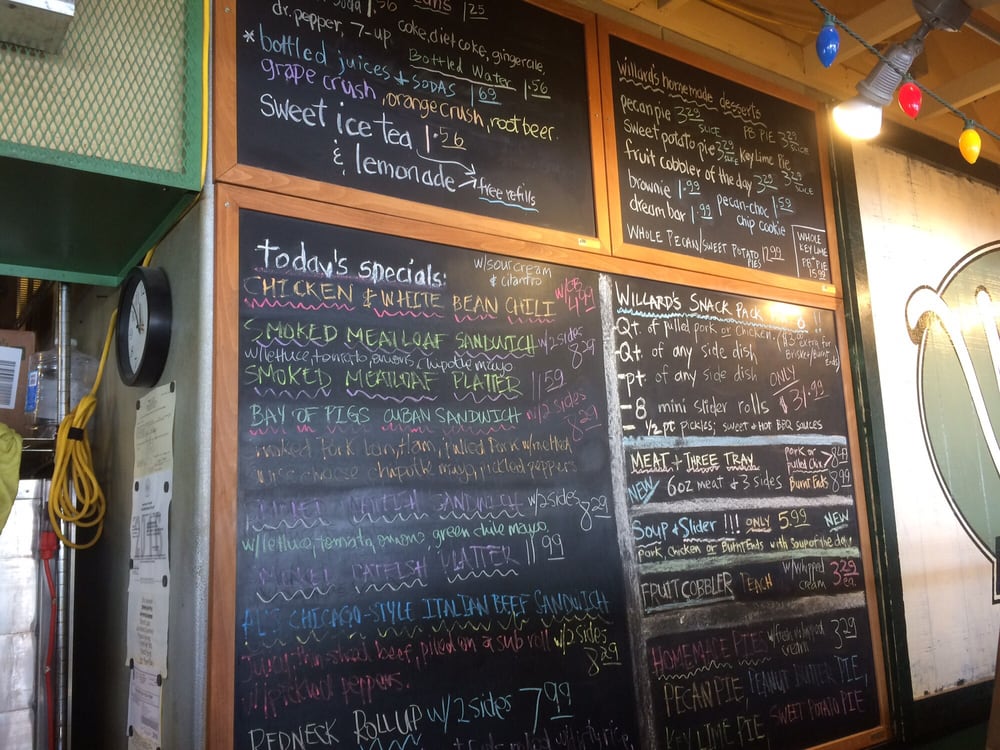 soda 1.56
1.25
dr. pepper, 7-up, coke, diet coke, gingerale,
Bottled Water 1.56
*bottled juices + SODAS 1.69
grape crush, orange crush, root beer.
Sweet ice tea 1.56
& lemonade → free refills
Willard's homemade desserts
pecan pie 3.29 SLICE PB PIE 3.29 SLICE
Sweet potato pie 3.29 SLICE Key Lime Pie 3.29 SLICE
fruit cobbler of the day 3.29
brownie 1.99 pecan-choc 1.59
dream bar 1.99 chip cookie
WHOLE PECAN/SWEET POTATO PIES 12.99
WHOLE
KEY LIME
PB PIE
15.99
Today's specials:
w/sour cream
& cilantro
CHICKEN & WHITE BEAN CHILI 4.99
SMOKED MEATLOAF SANDWICH w/2 sides 8.29
w/lettuce, tomato, onions, chipotle mayo
SMOKED MEATLOAF PLATTER 11.59
BAY OF PIGS CUBAN SANDWICH w/2 sides 8.29
smoked Pork Loin, Ham, Pulled Pork w/melted
cheese chipotle mayo, pickled peppers
CATFISH SANDWICH w/2 sides 8.29
w/lettuce, tomato, onions, green chile mayo
CATFISH PLATTER 11.99
CHICAGO-STYLE ITALIAN BEEF SANDWICH
Juicy, thin-sliced beef, piled on a sub roll w/2 sides
w/pickled peppers. 8.29
REDNECK ROLLUP w/2 sides 7.99
WILLARD'S SNACK PACK !!
-Qt of pulled pork or chicken. (+3 extra for
Brisket/Burnt Ends)
-Qt. of any side dish
-pt. of any side dish ONLY
-8 mini slider rolls $31.99
- 1/2 pt pickles; sweet & hot BBQ sauces
MEAT + THREE TRAY pork or pulled chix > 8.49
NEW 6oz meat & 3 sides Burnt Ends 8.99
Soup & Slider !!! ONLY 5.99 NEW
pork, chicken or Burnt Ends with Soup of the day
FRUIT COBBLER PEACH w/whipped cream 3.29 ea.
HOMEMADE PIES w/fresh whipped cream 3.29
PECAN PIE, PEANUT BUTTER PIE,
KEY LIME PIE SWEET POTATO PIE